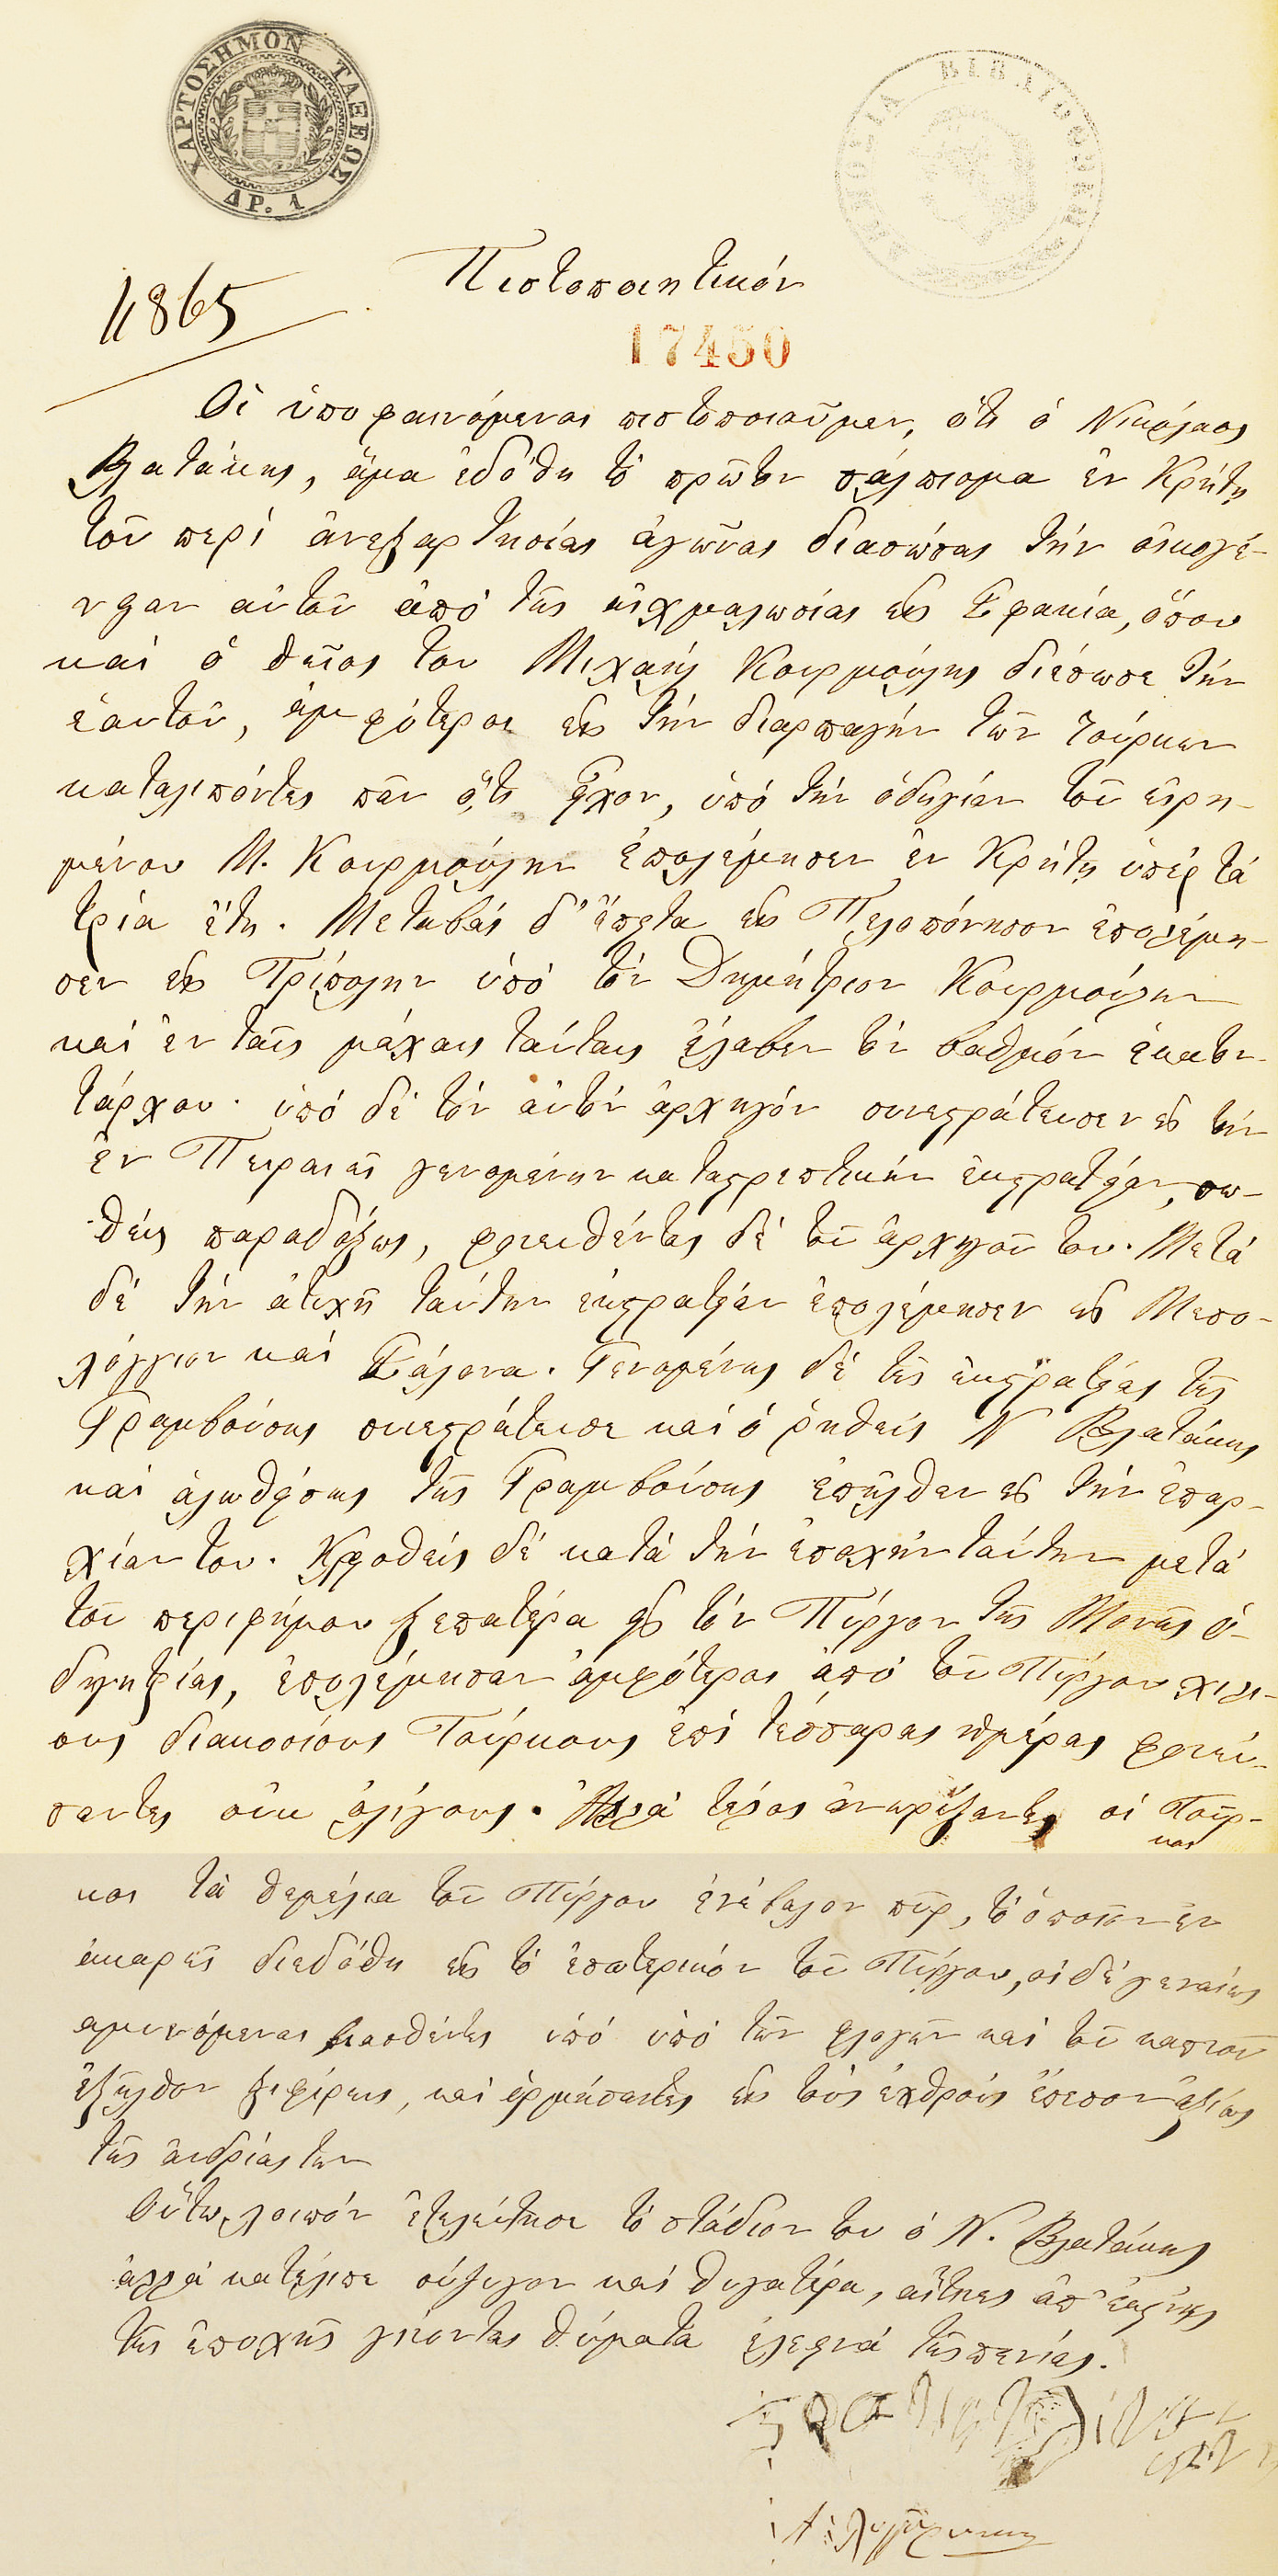 ΧΑΡΤΟΣΗΜΟΝ ΤΑΞΕΩΣ
ΔΡ. 1
ΒΙΒΛΙΟΘΗΚΗ
Πιστοποιητικόν
11865
17450
Οἱ ὑποφαινόμενοι πιστοποιοῦμεν, ὅτι ὁ Νικόλαος
Βλατάκης, ἅμα ἐδόθη τὸ πρῶτον σάλπισμα ἐν Κρήτῃ
τοῦ περὶ ἀνεξαρτησίας ἀγῶνος διασώσας τὴν οἰκογέ-
νειαν αὐτοῦ ἀπὸ τῆς αἰχμαλωσίας εἰς Σφακία, ὅπου
καὶ ὁ θεῖος του Μιχαὴλ Κουρμούλης διέσωσε τὴν
ἑαυτοῦ, ἀμφότεροι εἰς τὴν διαρπαγὴν τῶν Τούρκων
καταλιπόντες πᾶν ὅ,τι εἶχον, ὑπὸ τὴν ὁδηγίαν τοῦ εἰρη-
μένου Μ. Κουρμούλην ἐπολέμησεν ἐν Κρήτῃ ὑπὲρ τὰ
τρία ἔτη. Μεταβὰς δ' ἔπειτα εἰς Πελοπόννησον ἐπολέμη-
σεν εἰς Τρίπολην ὑπὸ τὸν Δημήτριον Κουρμούλην
καὶ ἐν ταῖς μάχαις ταύταις ἔλαβεν τὸν βαθμὸν ἑκατον-
τάρχου· ὑπὸ δὲ τὸν αὐτὸν ἀρχηγὸν συνεστράτευσεν εἰς τὴν
ἐν Πειραιεῖ γενομένην καταστρεπτικὴν ἐκστρατείαν, σω-
θεὶς παραδόξως, φονευθέντος δὲ τοῦ ἀρχηγοῦ του. Μετὰ
δὲ τὴν ἀτυχῆ ταύτην ἐκστρατείαν ἐπολέμησεν εἰς Μεσο-
λόγγιον καὶ Σάλονα. Γενομένης δὲ τῆς ἐκστρατείας τῆς
Γραμβούσης συνεστράτευσε καὶ ὁ ῥηθεὶς Ν Βλατάκης
καὶ ἁλωθείσης τῆς Γραμβούσης ἐπῆλθεν εἰς τὴν ἐπαρ-
χίαν του. Κλεισθεὶς δὲ κατὰ τὴν ἐποχὴν ταύτην μετὰ
τοῦ περιφήμου Ξεπατέρα εἰς τὸν Πύργον τῆς Μονῆς Ὁ-
δηγητρίας, ἐπολέμησαν ἀμφότεροι ἀπὸ τοῦ Πύργου χιλί-
ους διακοσίους Τούρκους ἐπὶ τέσσαρας ἡμέρας φονεύ-
σαντες οὐκ ὀλίγους. Ἀλλὰ τέλος ἀνορύξαντες οἱ Τοῦρ-
κοι
κοι τὰ θεμέλια τοῦ Πύργου ἐνέβαλον πῦρ, τὸ ὁποῖον ἐν
ἀκαρεῖ διεδόθη εἰς τὸ ἐσωτερικὸν τοῦ Πύργου, οἱ δὲ γενναίως
αμυνόμενοι βιασθέντες ὑπὸ ὑπὸ τῶν φλογῶν καὶ τοῦ καπνοῦ
ἐξῆλθον ξιφήρεις, καὶ ὁρμήσαντες εἰς τοὺς ἐχθροὺς ἔπεσον ἀξίως
τῆς ἀνδρίας των
Οὕτω λοιπὸν ἐτελεύτησε τὸ στάδιον του ὁ Ν. Βλατάκης
ἀλλὰ κατέλιπε σύζυγον καὶ θυγατέρα, αἵτινες ἀπ' ἐκείνης
τῆς ἐποχῆς γίνονται θύματα ἐλεεινὰ τῆς πενίας.